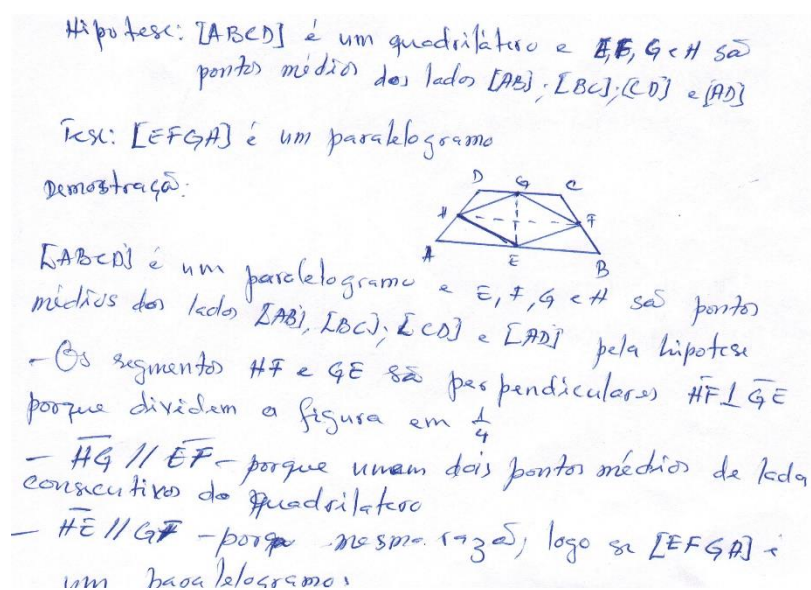 Hipotese: [ABCD] é um quadrilátero e E, F, G e H são
pontos médios dos lados [AB]; [BC]; [CD] e [AD]
Tese: [EFGH] é um paralelogramo
Demostração:
D G C
H F
A E B
[ABCD] é um paralelogramo e E, F, G e H são pontos
médios dos lados [AB], [BC]; [CD] e [AD] pela hipotese
- Os segmentos HF e GE são perpendiculares HF ⊥ GE
porque dividem a figura em 1/4
- HG // EF - porque unem dois pontos médios de lada
consecutivos do quadrilatero
- HE // GF - porq mesma razaõ, logo se [EFGH] é
um paralelogramo.